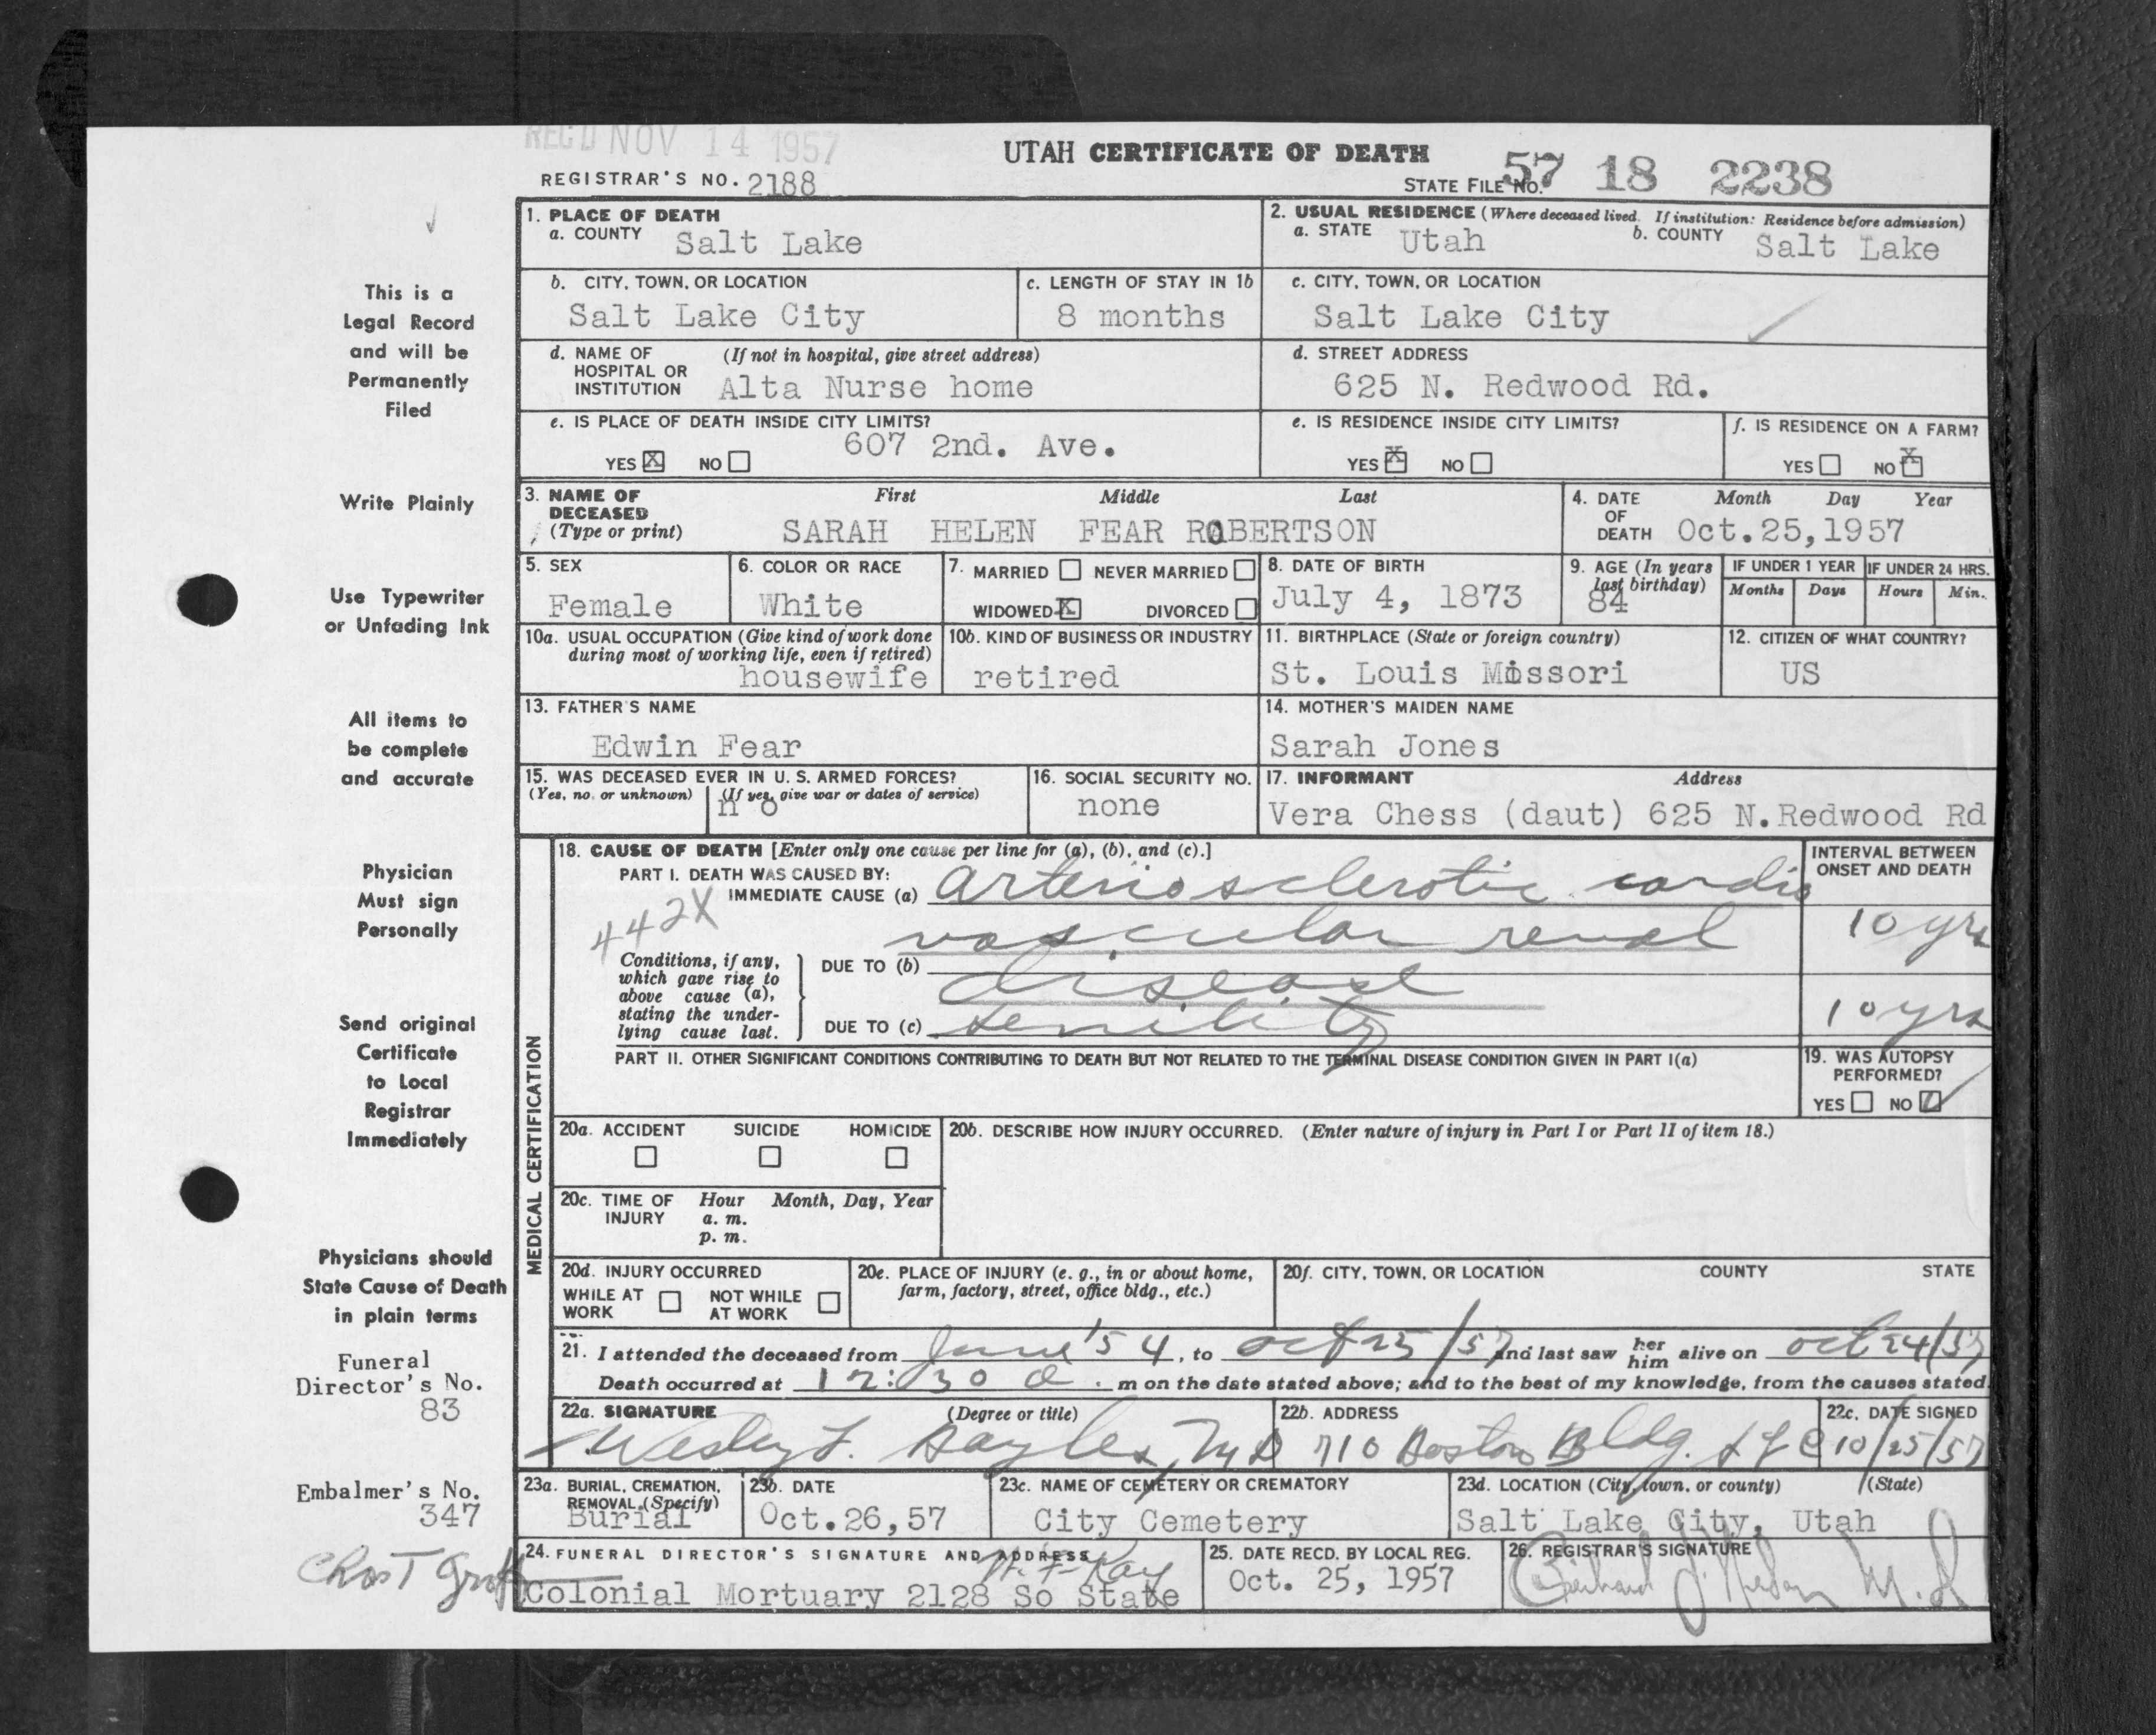 REC'D NOV 14 1957
UTAH CERTIFICATE OF DEATH
REGISTRAR'S NO. 2188
STATE FILE NO. 57 18 2238
This is a
Legal Record
and will be
Permanently
Filed
Write Plainly
Use Typewriter
or Unfading Ink
All items to
be complete
and accurate
Physician
Must sign
Personally
Send original
Certificate
to Local
Registrar
Immediately
Physicians should
State Cause of Death
in plain terms
Funeral
Director's No.
83
Embalmer's No.
347
Chas T
1. PLACE OF DEATH
a. COUNTY Salt Lake
2. USUAL RESIDENCE (Where deceased lived. If institution: Residence before admission)
a. STATE Utah b. COUNTY Salt Lake
b. CITY, TOWN, OR LOCATION
Salt Lake City
c. LENGTH OF STAY IN 1b
8 months
c. CITY, TOWN, OR LOCATION
Salt Lake City
d. NAME OF (If not in hospital, give street address)
HOSPITAL OR
INSTITUTION Alta Nurse home
d. STREET ADDRESS
625 N. Redwood Rd.
e. IS PLACE OF DEATH INSIDE CITY LIMITS?
607 2nd. Ave.
YES X NO
e. IS RESIDENCE INSIDE CITY LIMITS?
YES X NO
f. IS RESIDENCE ON A FARM?
YES NO X
3. NAME OF First Middle Last
DECEASED
(Type or print) SARAH HELEN FEAR ROBERTSON
4. DATE Month Day Year
OF
DEATH Oct.25,1957
5. SEX
Female
6. COLOR OR RACE
White
7. MARRIED NEVER MARRIED
WIDOWED X DIVORCED
8. DATE OF BIRTH
July 4, 1873
9. AGE (In years
last birthday)
84
IF UNDER 1 YEAR
Months Days
IF UNDER 24 HRS.
Hours Min.
10a. USUAL OCCUPATION (Give kind of work done
during most of working life, even if retired)
housewife
10b. KIND OF BUSINESS OR INDUSTRY
retired
11. BIRTHPLACE (State or foreign country)
St. Louis Missori
12. CITIZEN OF WHAT COUNTRY?
US
13. FATHER'S NAME
Edwin Fear
14. MOTHER'S MAIDEN NAME
Sarah Jones
15. WAS DECEASED EVER IN U. S. ARMED FORCES?
(Yes, no. or unknown) (If yes, give war or dates of service)
n o
16. SOCIAL SECURITY NO.
none
17. INFORMANT Address
Vera Chess (daut) 625 N.Redwood Rd
MEDICAL CERTIFICATION
18. CAUSE OF DEATH [Enter only one cause per line for (a), (b), and (c).]
INTERVAL BETWEEN
ONSET AND DEATH
PART I. DEATH WAS CAUSED BY:
IMMEDIATE CAUSE (a) arteriosclerotic cardio
442X
vascular renal 10 yrs
Conditions, if any,
which gave rise to
above cause (a),
stating the under-
lying cause last.
DUE TO (b) disease
DUE TO (c) senility 10 yrs
PART II. OTHER SIGNIFICANT CONDITIONS CONTRIBUTING TO DEATH BUT NOT RELATED TO THE TERMINAL DISEASE CONDITION GIVEN IN PART I(a)
19. WAS AUTOPSY
PERFORMED?
YES NO ✓
20a. ACCIDENT SUICIDE HOMICIDE
20b. DESCRIBE HOW INJURY OCCURRED. (Enter nature of injury in Part I or Part II of item 18.)
20c. TIME OF Hour Month, Day, Year
INJURY a. m.
p. m.
20d. INJURY OCCURRED
WHILE AT NOT WHILE
WORK AT WORK
20e. PLACE OF INJURY (e. g., in or about home,
farm, factory, street, office bldg., etc.)
20f. CITY, TOWN, OR LOCATION COUNTY STATE
21. I attended the deceased from June '54, to Oct 25/57 and last saw her him alive on Oct 24/57
Death occurred at 12:30 a. m on the date stated above; and to the best of my knowledge, from the causes stated.
22a. SIGNATURE (Degree or title)
Wesley F. Bayles, MD
22b. ADDRESS
710 Boston Bldg. SLC
22c. DATE SIGNED
10/25/57
23a. BURIAL, CREMATION,
REMOVAL (Specify)
Burial
23b. DATE
Oct.26,57
23c. NAME OF CEMETERY OR CREMATORY
City Cemetery
23d. LOCATION (City, town, or county) (State)
Salt Lake City, Utah
24. FUNERAL DIRECTOR'S SIGNATURE AND ADDRESS
Kay
Colonial Mortuary 2128 So State
25. DATE RECD. BY LOCAL REG.
Oct. 25, 1957
26. REGISTRAR'S SIGNATURE